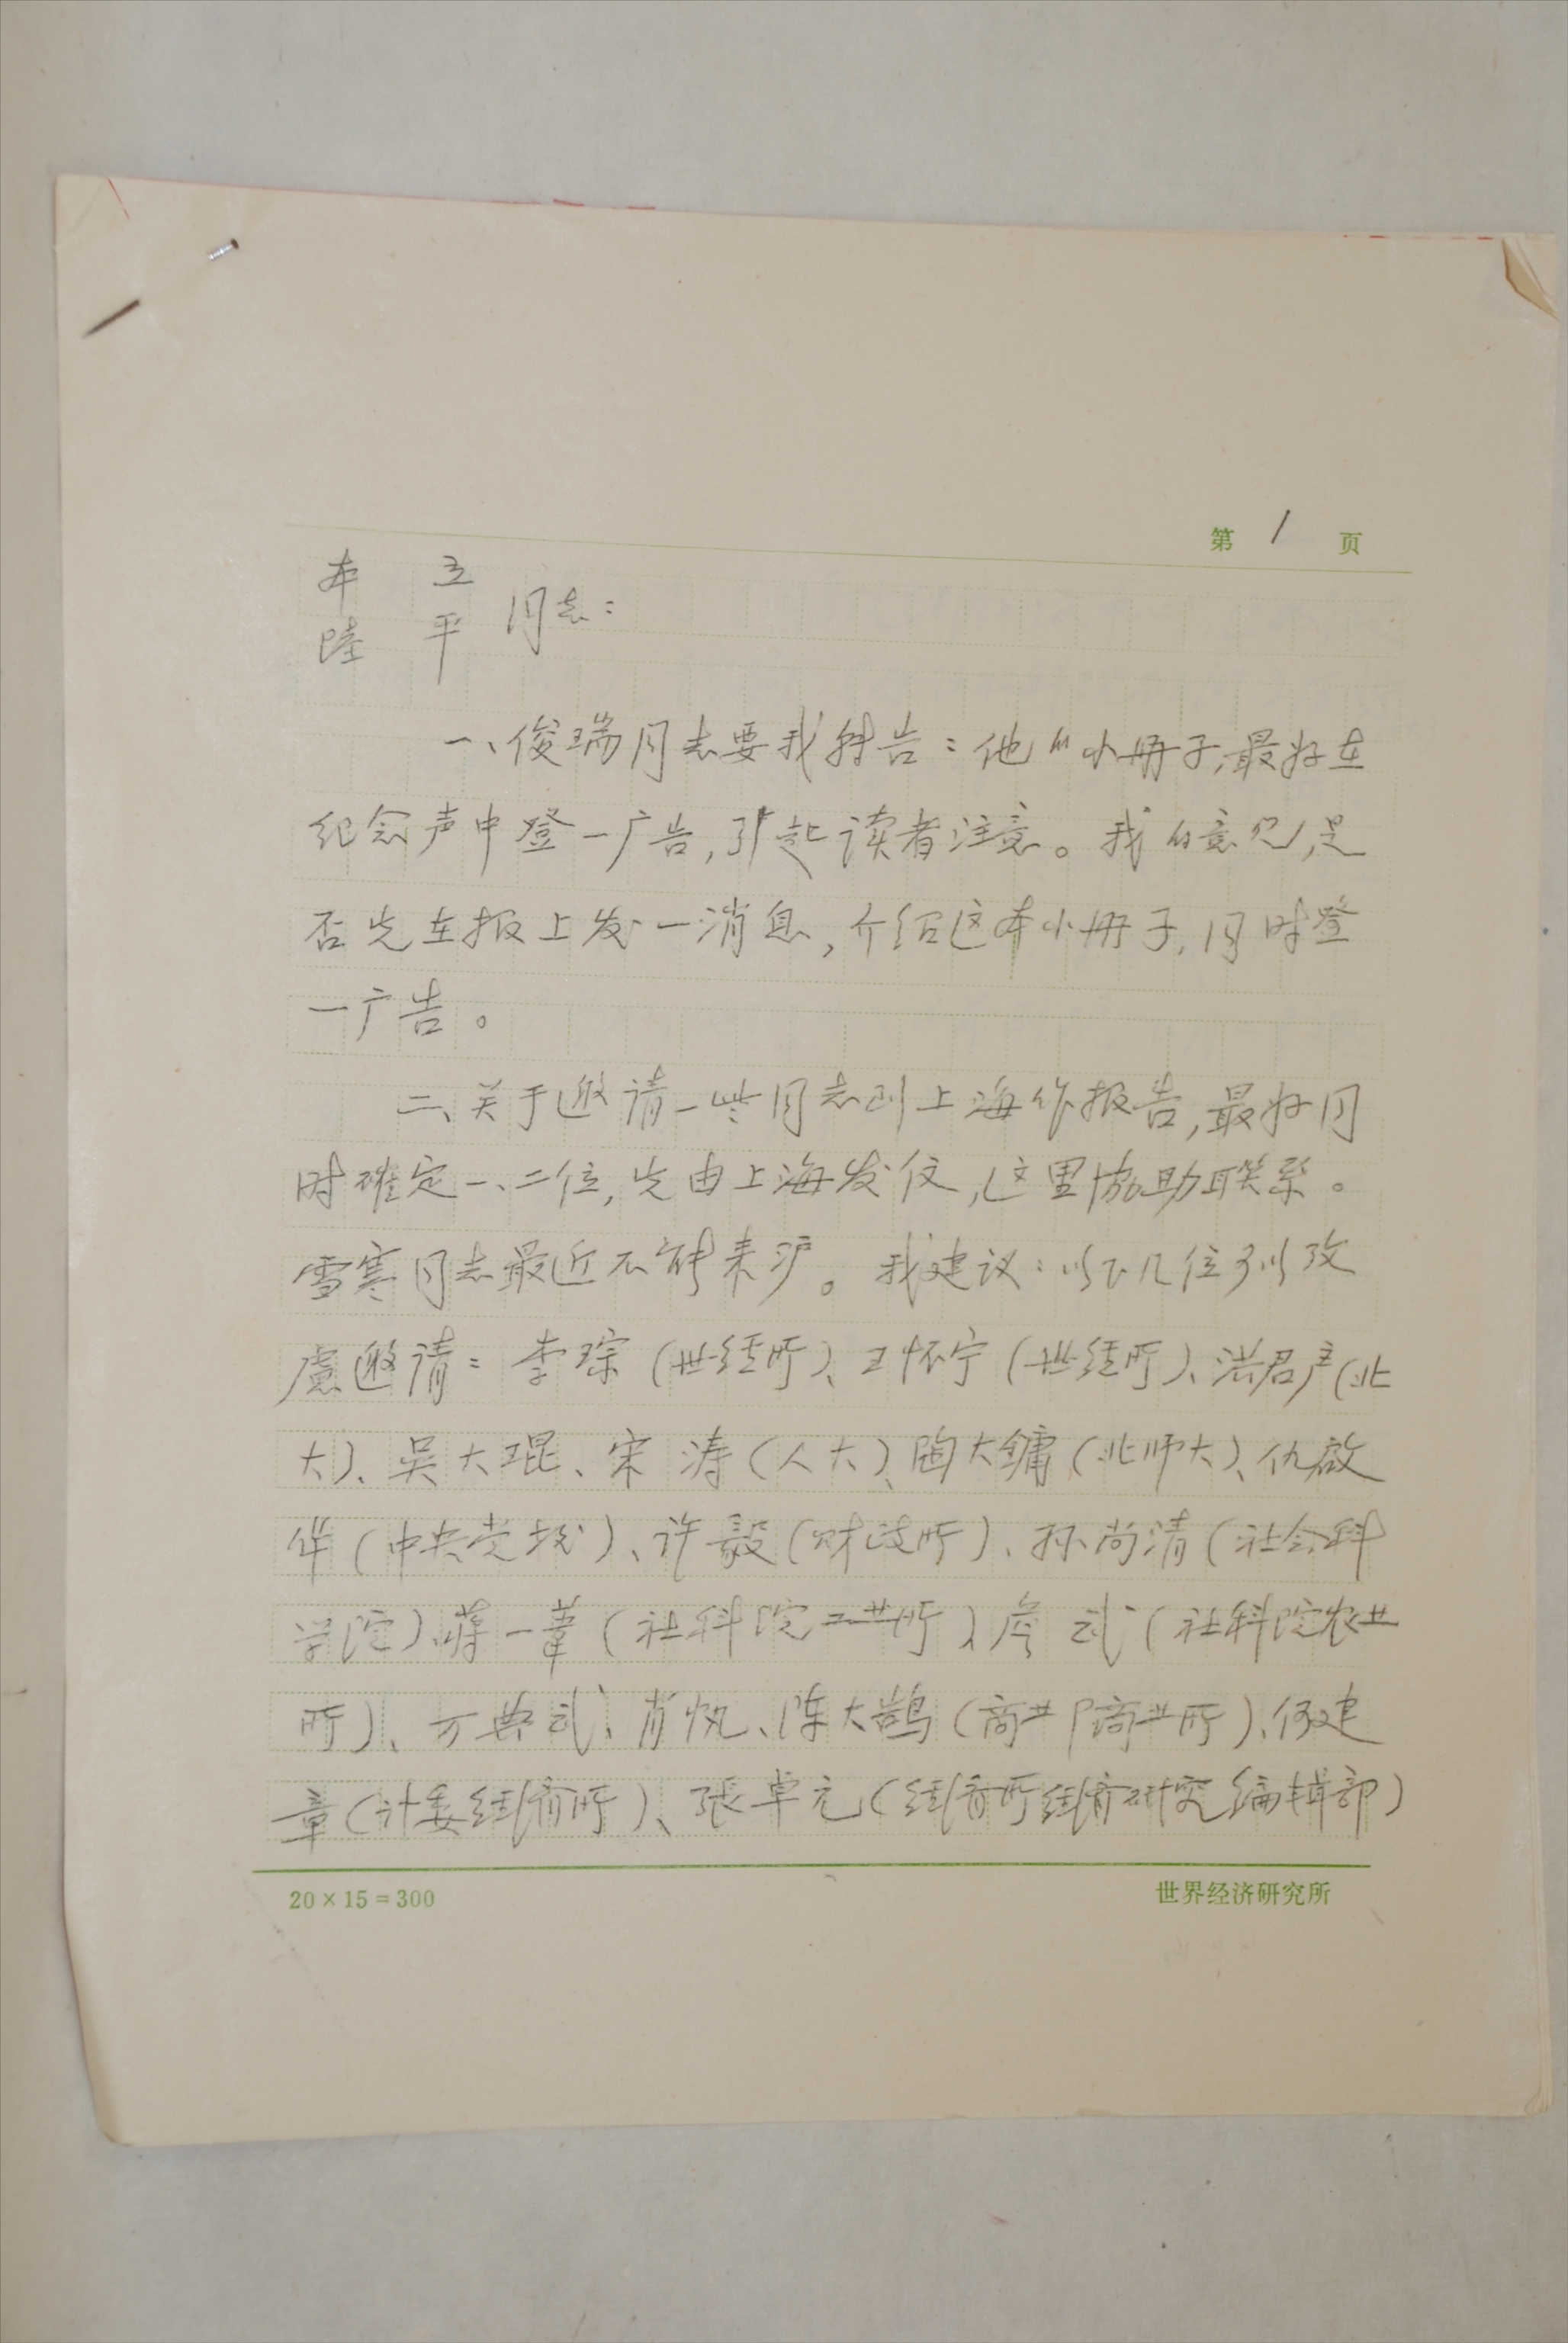 第 1 页
本 立
陆 平 同志：
一、俊瑞同志要我转告：他的小册子，最好在
纪念声中登一广告，引起读者注意。我的意见，是
否先在报上发一消息，介绍这本小册子，同时登
一广告。
二、关于邀请一些同志到上海作报告，最好同
时確定一、二位，先由上海发仪，这里協助联系。
雪寒同志最近不能来沪。我建议：以下几位可以攷
慮邀请：李琮（世经所）、王怀宁（世经所）、洪君彦（北
大）、吴大琨、宋涛（人大）、陶大鏞（北师大）、仇啟
华（中央党校）、许毅（财政所）、孙尚清（社会科
学院）、蒋一葦（社科院工业所）、詹武（社科院农业
所）、万典武、肖帆、陈大鹄（商业部商业所）、何建
章（计委经济所）、張卓元（经济所经济研究编辑部）
20×15=300
世界经济研究所